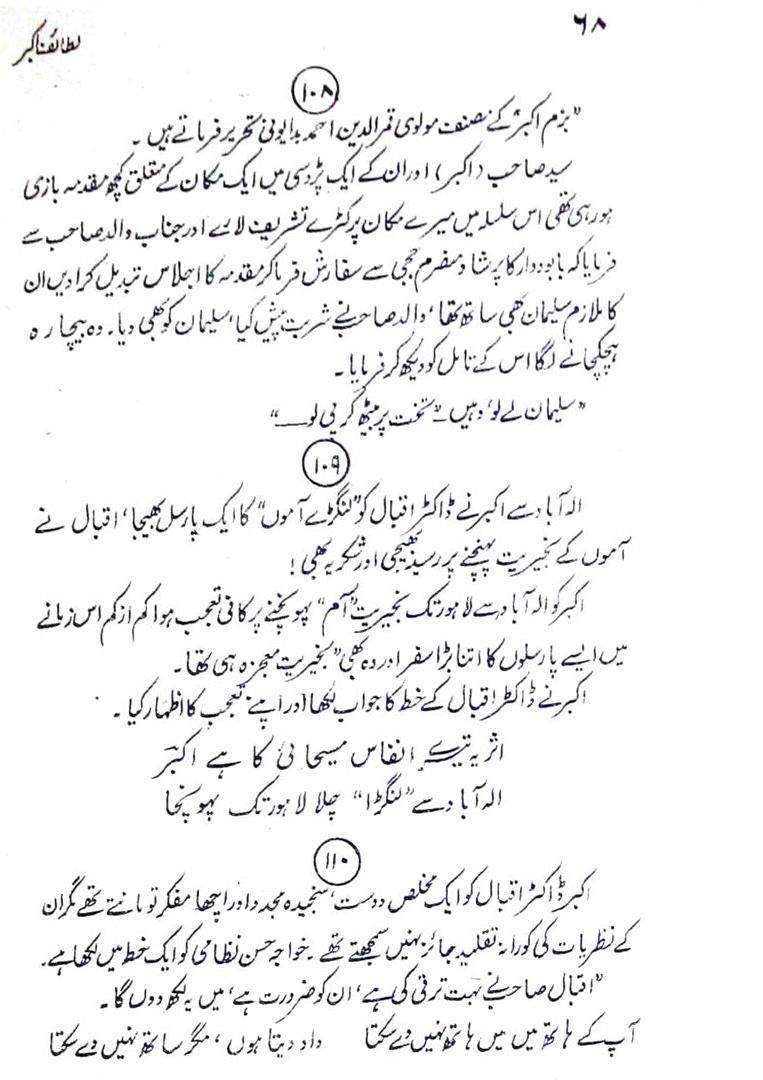 ۶۸
لطائف اکبر
۱۰۸
"بزم اکبر" کے مصنف مولوی قمر الدین احمد بدایونی تحریر فرماتے ہیں ۔
سید صاحب (اکبر) اور ان کے ایک پڑوسی میں ایک مکان کے متعلق کچھ مقدمہ بازی
ہو رہی تھی اس سلسلہ میں میرے مکان پر کٹرے تشریف لائے اور جناب والد صاحب سے
فرمایا کہ بابو دوارکا پرشاد منصرم ججی سے سفارش فرما کر مقدمہ کا اجلاس تبدیل کرا دیں ان
کا ملازم سلیمان بھی ساتھ تھا، والد صاحب نے شربت پیش کیا، سلیمان کو بھی دیا۔ وہ بیچارہ
ہچکچانے لگا اس کے تامل کو دیکھ کر فرمایا ۔
"سلیمان لے لو، وہیں ۔ تخت پر بیٹھ کر پی لو۔۔۔"
۱۰۹
الہ آباد سے اکبر نے ڈاکٹر اقبال کو "لنگڑے آموں" کا ایک پارسل بھیجا، اقبال نے
آموں کے بخیریت پہنچنے پر رسید بھیجی اور شکریہ بھی!
اکبر کو الہ آباد سے لاہور تک بخیریت "آم" پہونچنے پر کافی تعجب ہوا کم از کم اس زمانے
میں ایسے پارسلوں کا اتنا بڑا سفر اور وہ بھی "بخیریت معجزہ ہی تھا۔
اکبر نے ڈاکٹر اقبال کے خط کا جواب لکھا اور اپنے تعجب کا اظہار کیا ۔
اثر یہ تیرے انفاس مسیحائی کا ہے اکبرؔ
الہ آباد سے "لنگڑا" چلا لاہور تک پہونچا
۱۱۰
اکبر ڈاکٹر اقبال کو ایک مخلص دوست، سنجیدہ مجدد اور اچھا مفکر تو مانتے تھے مگر ان
کے نظریات کی کورانہ تقلید جائز نہیں سمجھتے تھے ۔ خواجہ حسن نظامی کو ایک خط میں لکھا ہے۔
"اقبال صاحب نے بہت ترقی کی ہے، ان کو ضرورت ہے، میں یہ لکھ دوں گا ۔
آپ کے ہاتھ میں میں ہاتھ نہیں دے سکتا داد دیتا ہوں، مگر ساتھ نہیں دے سکتا